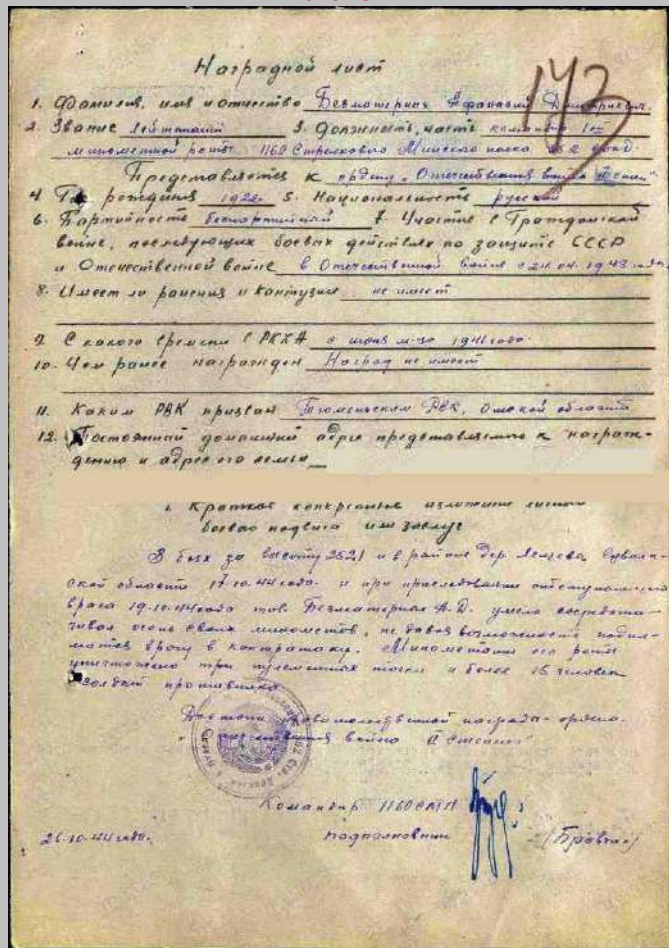 143
Наградной лист
1. Фамилия, имя и отчество Безматерных Афанасий Дмитриевич.
2. Звание лейтенант 3. Должность, часть командир 1ой
минометной роты 1160 Стрелкового Минского полка 352
Представляется к ордену „Отечественная война II степ"
4 Год рождения 1922. 5. Национальность русский
6. Партийность беспартийный 7. Участие в Гражданской
войне, последующих боевых действиях по защите СССР
и Отечественной войне в Отечественной войне с 24.04.1943
8. Имеет ли ранения и контузии не имеет
9. С какого времени в РККА с июня м-ца 1941 года.
10. Чем ранее награжден Наград не имеет
11. Каким РВК призван Тюменьским РВК, Омской области
12. Постоянный домашний адрес представляемого к награж-
дению и адрес его семьи
1. Краткое конкретное изложение личного
боевого подвига или заслуг
В боях за высоту 252,1 и в районе дер. Сувалк-
ской области 17.10.44 года. и при преследовании отступающего
врага 19.10.44 года тов. Безматерных А.Д. умело сосредота-
чивал огонь своих минометов, не давая возможности подни-
матся врагу в контратаку. Минометами его роты
уничтожено три пулеметных точки и более 15 человек
солдат противника.
Достоин правительственной награды - ордена.
„Отечественная война II степени"
Командир 1160 СМП
подполковник
26.10.44 года.